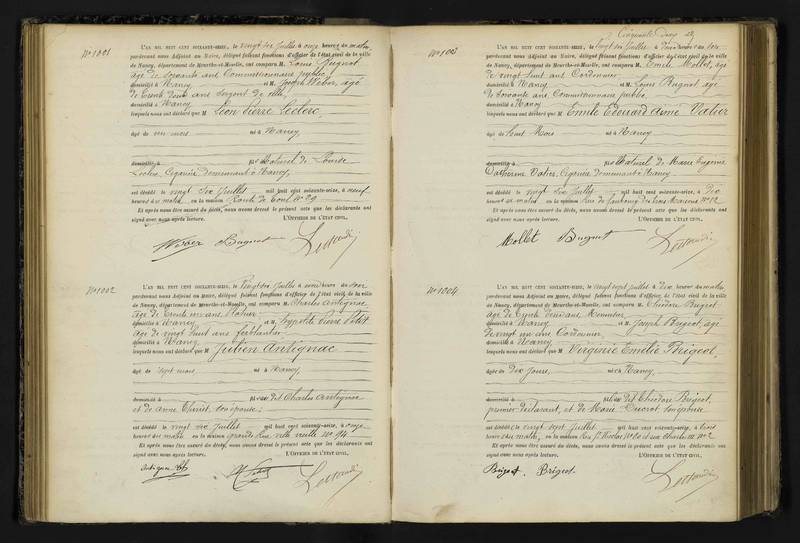 N° 1001
L'AN MIL HUIT CENT SOIXANTE-SEIZE, le vingt six Juillet à onze heures du matin
pardevant nous Adjoint au Maire, délégué faisant fonctions d'officier de l'état civil de la ville
de Nancy, département de Meurthe-et-Moselle, ont comparu M. Louis Bugnot
âgé de soixante ans Commissionnaire public,
domicilié à Nancy et M. Joseph Weber, âgé
de trente deux ans sergent de ville
domicilié à Nancy
lesquels nous ont déclaré que M Léon Pierre Leclerc,
âgé de un mois né à Nancy
domicilié à fils Naturel de Louise
Leclerc, Cigarière demeurant à Nancy,
est décédé le vingt six Juillet mil huit cent soixante-seize, à neuf
heures du matin en la maison Route de Toul N° 29
Et après nous être assuré du décès, nous avons dressé le présent acte que les déclarants ont
signé avec nous après lecture. L'OFFICIER DE L'ÉTAT CIVIL,
Weber Bugnot
N° 1002
L'AN MIL HUIT CENT SOIXANTE-SEIZE, le vingt six Juillet à heures du soir
pardevant nous Adjoint au Maire, délégué faisant fonctions d'officier de l'état civil de la ville
de Nancy, département de Meurthe-et-Moselle, ont comparu M. Charles Antignac
âgé de trente un ans,
domicilié à Nancy et M. Hyppolite Pierre Petit
âgé de vingt huit ans ferblantier
domicilié à Nancy
lesquels nous ont déclaré que M Julien Antignac
âgé de sept mois né à Nancy,
domicilié à fils du dit Charles Antignac
et de Anne son épouse,
est décédé le vingt six Juillet mil huit cent soixante-seize, à onze
heures du matin en la maison grande Rue ville vieille N° 94
Et après nous être assuré du décès, nous avons dressé le présent acte que les déclarants ont
signé avec nous après lecture. L'OFFICIER DE L'ÉTAT CIVIL,
Antignac Ch
N° 1003
L'AN MIL HUIT CENT SOIXANTE-SEIZE, le vingt six Juillet à deux heures du soir
pardevant nous Adjoint au Maire, délégué faisant fonctions d'officier de l'état civil de la ville
de Nancy, département de Meurthe-et-Moselle, ont comparu M. Emile Mollet, âgé
de vingt huit ans Cordonnier
domicilié à Nancy et M. Louis Bugnot âgé
de soixante ans, Commissionnaire public,
domicilié à Nancy
lesquels nous ont déclaré que M Emile Edouard Aimé Vatier
âgé de huit Mois né à Nancy
domicilié à fils Naturel de Marie Eugénie
Catherine Vatier, Cigarière demeurant à Nancy
est décédé le vingt six Juillet mil huit cent soixante-seize, à dix
heures du matin en la maison Rue du faubourg des trois Maisons N° 12
Et après nous être assuré du décès, nous avons dressé le présent acte que les déclarants ont
signé avec nous après lecture. L'OFFICIER DE L'ÉTAT CIVIL,
Mollet Bugnot
N° 1004
L'AN MIL HUIT CENT SOIXANTE-SEIZE, le vingt sept Juillet à dix heures du matin
pardevant nous Adjoint au Maire, délégué faisant fonctions d'officier de l'état civil de la ville
de Nancy, département de Meurthe-et-Moselle, ont comparu M. Théodore Brégeot
âgé de trente deux ans, Menuisier
domicilié à Nancy et M. Joseph Brégeot, âgé
de vingt un ans Cordonnier,
domicilié à Nancy
lesquels nous ont déclaré que M Virginie Emélie Brégeot,
âgée de Dix Jours, née à Nancy,
domicilié à fille du dit Théodore Brégeot,
premier déclarant, et de Marie son épouse
est décédée le vingt sept Juillet mil huit cent soixante-seize, à trois
heures du matin, en la maison Rue St Nicolas N° 20 et rue Charles III N° 2
Et après nous être assuré du décès, nous avons dressé le présent acte que les déclarants ont
signé avec nous après lecture. L'OFFICIER DE L'ÉTAT CIVIL,
Brégeot. Brégeot